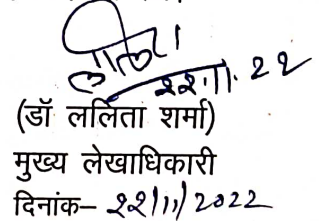 ललिता
२२.११.२२
(डॉ ललिता शर्मा)
मुख्य लेखाधिकारी
दिनांक– २२/११/2022